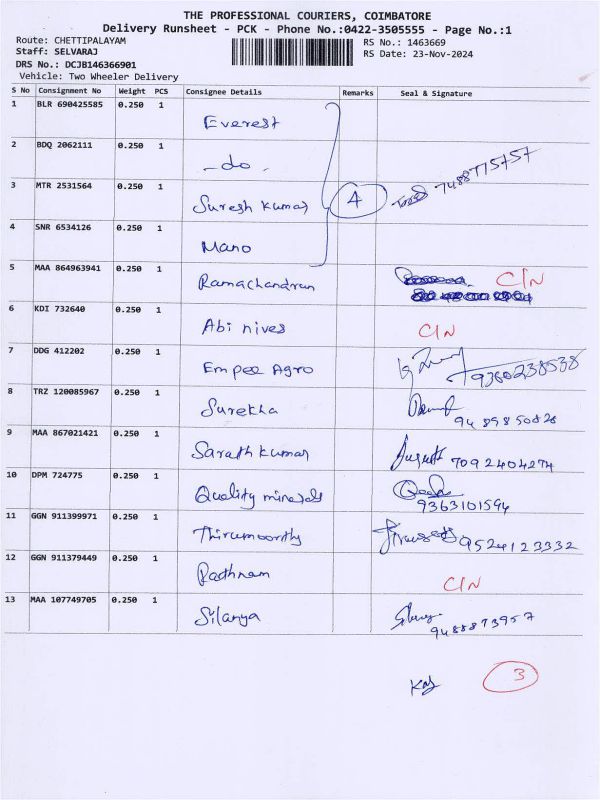 THE PROFESSIONAL COURIERS, COIMBATORE
Delivery Runsheet - PCK - Phone No.:0422-3505555 - Page No.:1
Route: CHETTIPALAYAM
Staff: SELVARAJ
DRS No.: DCJB146366901
Vehicle: Two Wheeler Delivery
RS No.: 1463669
RS Date: 23-Nov-2024
S No Consignment No Weight PCS Consignee Details Remarks Seal & Signature
1 BLR 690425585 0.250 1 Everest
2 BDQ 2062111 0.250 1 - do -
3 MTR 2531564 0.250 1 Suresh Kumar 4 7488775757
4 SNR 6534126 0.250 1 Mano
5 MAA 864963941 0.250 1 Ramachandran C/N
6 KDI 732640 0.250 1 Abi nives C/N
7 DDG 412202 0.250 1 Empee Agro 9360238538
8 TRZ 120085967 0.250 1 Surekha 9489850828
9 MAA 867021421 0.250 1 Sarath kumar 7092404274
10 DPM 724775 0.250 1 Quality minerals 9363101594
11 GGN 911399971 0.250 1 Thirumoorthy 9524123332
12 GGN 911379449 0.250 1 Rathnam C/N
13 MAA 107749705 0.250 1 Silanya 9488873957
3